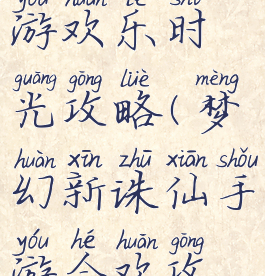 yóu huān lè shí
游欢乐时
guāng gōng lüè mèng
光攻略(梦
huàn xīn zhū xiān shǒu
幻新诛仙手
yóu hé huān gōng
游合欢攻